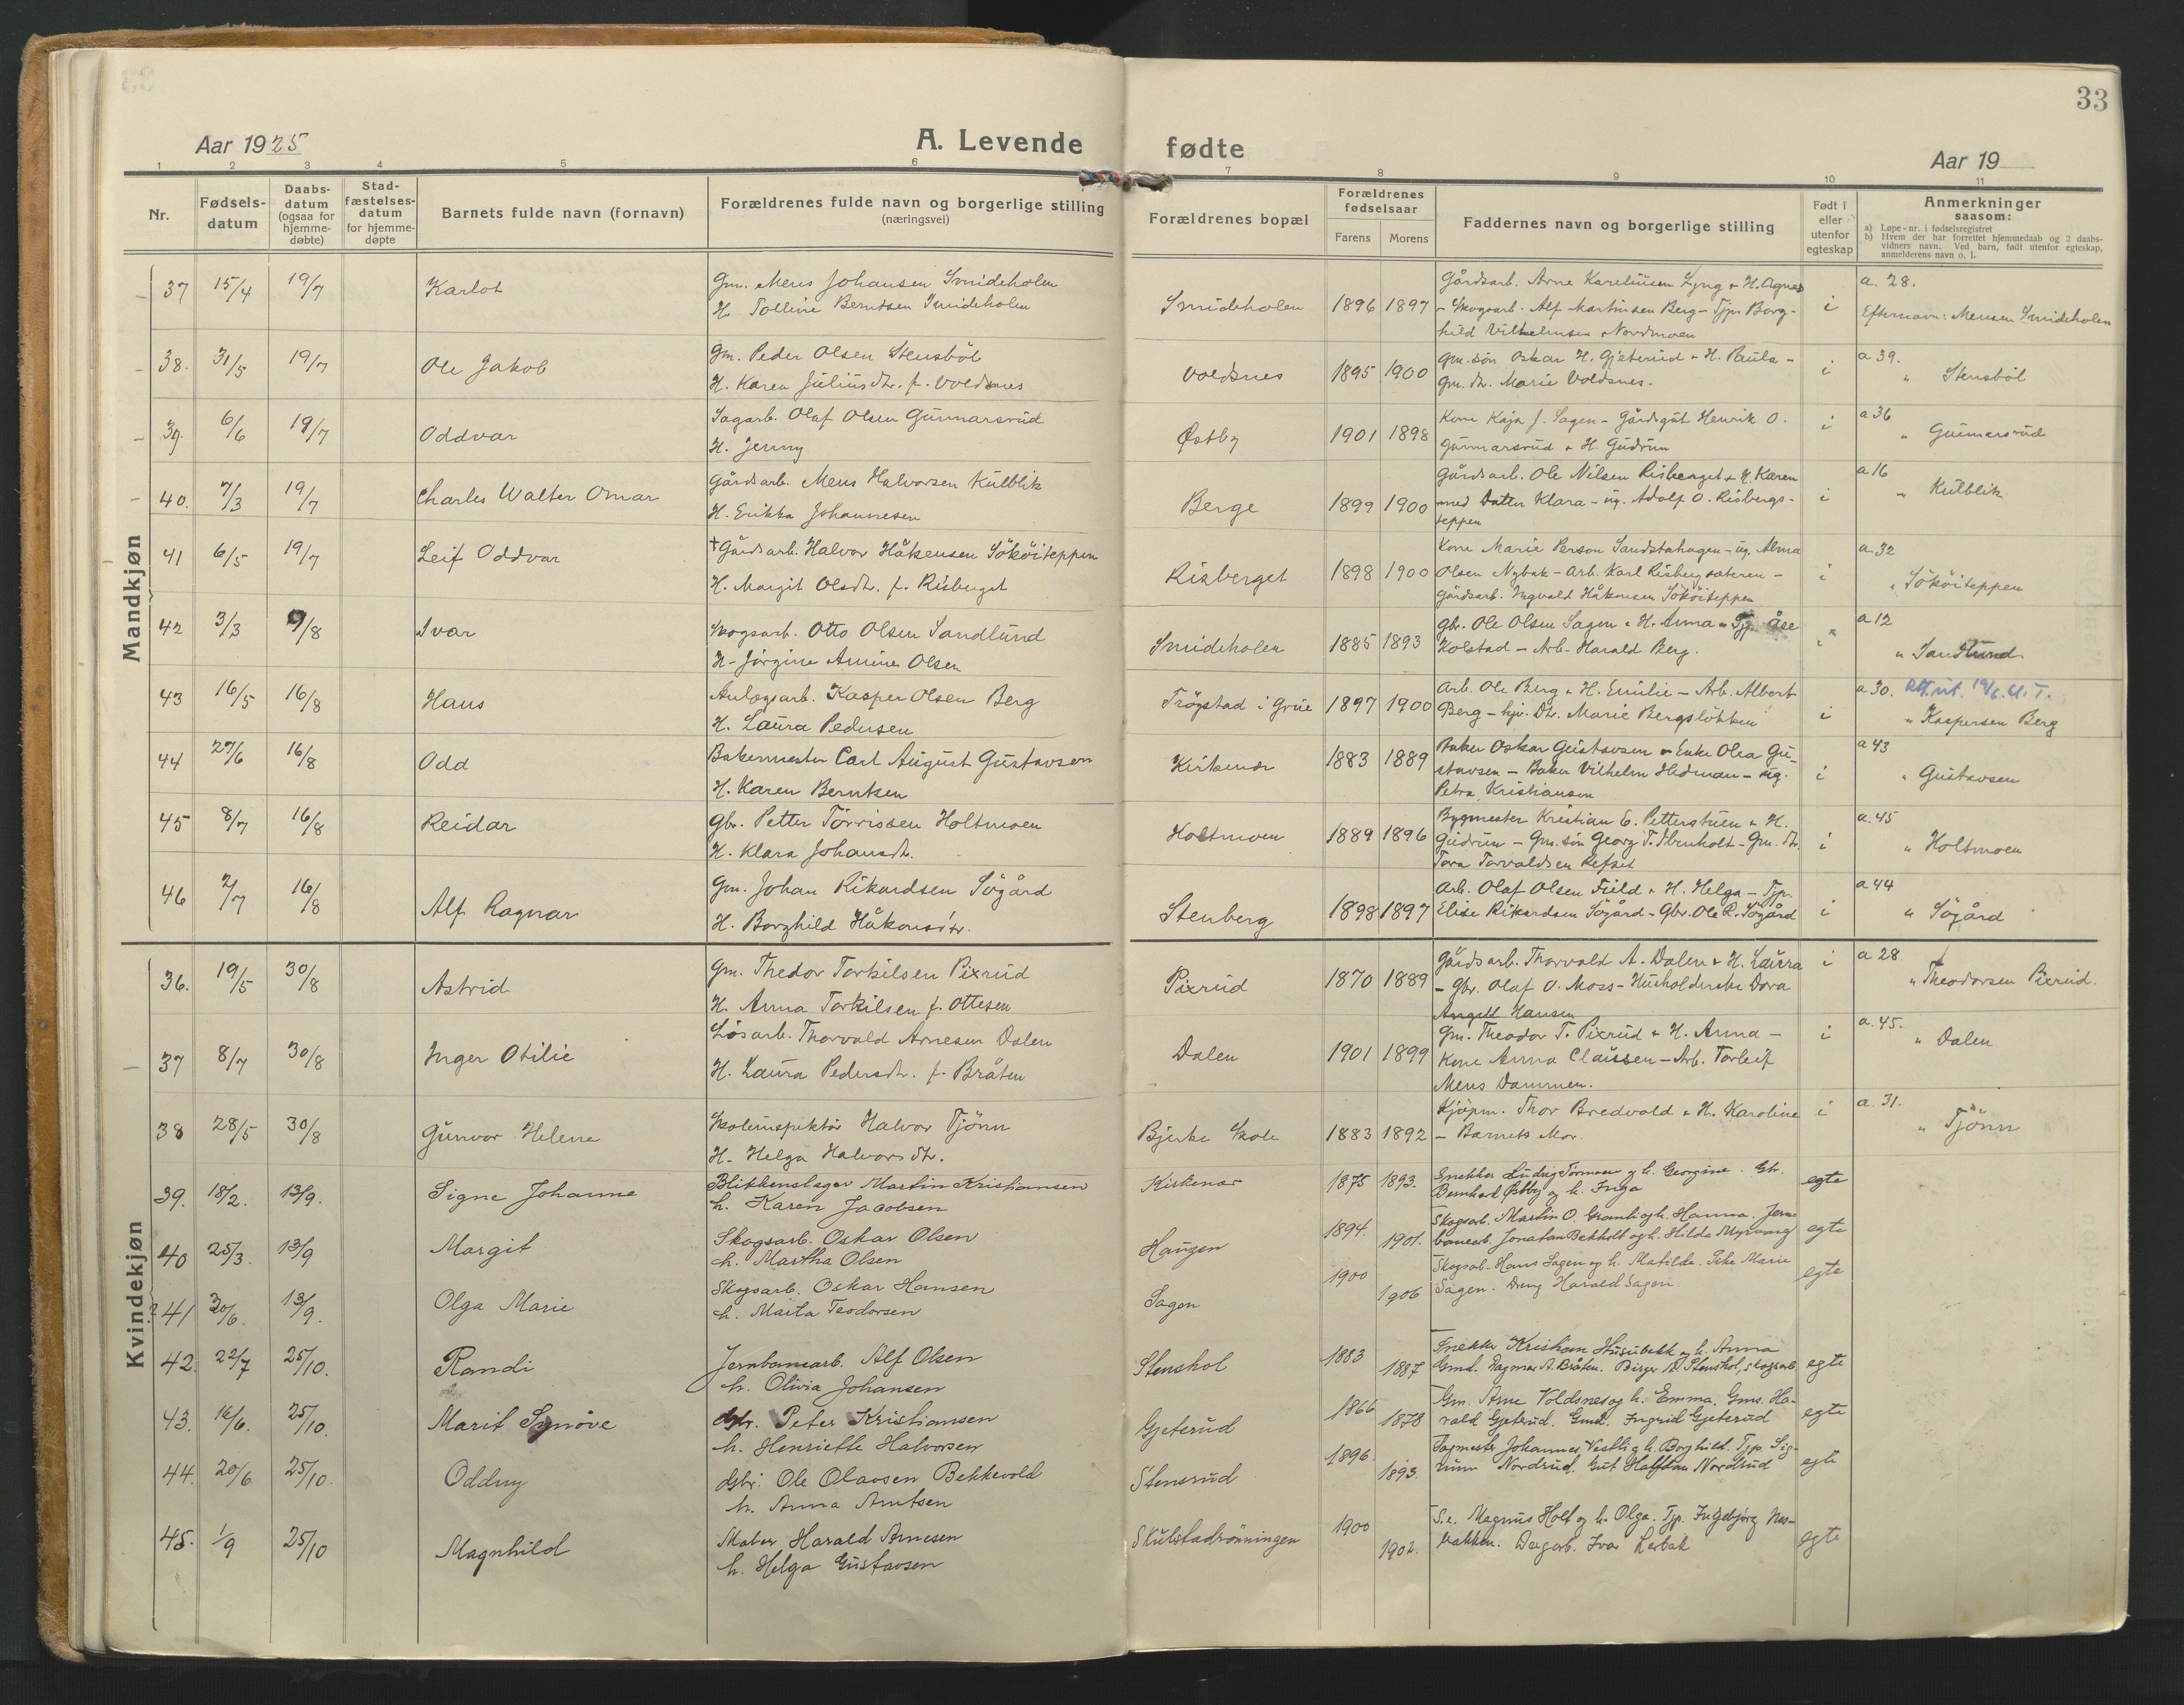 33
Aar 1925
A. Levende fødte
Aar 19
1 2 3 4 5 6 7 8 9 10 11
Nr.
Fødsels-
datum
Daabs-
datum
(ogsaa for
hjemme-
døbte)
Stad-
fæstelses-
datum
for hjemme-
døpte
Barnets fulde navn (fornavn)
Forældrenes fulde navn og borgerlige stilling
(næringsvei)
Forældrenes bopæl
Forældrenes
fødselsaar
Farens Morens
Faddernes navn og borgerlige stilling
Født i
eller
utenfor
egteskap
Anmerkninger
saasom:
a) Løpe-nr. i fødselsregistret
b) Hvem der har forrettet hjemmedaab og 2 daabs-
vidners navn. Ved barn, født utenfor egteskap,
anmelderens navn o. l.
Mandkjøn
37 15/4 19/7 Karlot
Gm. Mens Johansen Smideholen
H. Polline Berntsen Smideholen
Smideholen 1896 1897
Gårdsarb. Arne Kareliusen Lyng + H. Agnes
- Skogsarb. Alf Martinsen Berg - Tjp. Borg-
hild Vilhelmsen Nordmoen
i
a. 28.
Efternavn: Mensen Smideholen
38. 31/5 19/7 Ole Jakob
Gm. Peder Olsen Stensböl
H. Karen Juliusdtr. f. Voldsnes
Voldsnes 1895 1900
Gm. søn Oskar H. Gjeterud + H. Paula -
Gm. dtr. Marie Voldsnes.
i
a 39.
" Stensböl
39. 6/6 19/7 Oddvar
Sagarb. Olaf Olsen Gunnarsrud
H. Jenny
Østby 1901 1898
Kone Kaja J. Sagen - Gårdsgut Henrik O.
Gunnarsrud + H. Gudrun
i
a 36
" Gunnarsrud
40. 7/3 19/7 Charles Walter Omar
Gårdsarb. Mens Halvorsen Kulblik
H. Erikka Johannesen
Berge 1899 1900
Gårdsarb. Ole Nilsen Risberget + H. Karen
med Datter Klara - ug. Adolf O. Risbergs-
teppen
i
a 16
" Kulblik
41 6/5 19/7 Leif Oddvar
† Gårdsarb. Halvor Håkensen Sököiteppen
H. Margit Olsdtr. f. Risberget
Risberget 1898 1900
Kone Marie Person Sandstahagen - ug. Alma
Olsen Nybak - Arb. Karl Risbergsæteren -
Gårdsarb. Ingvald Håkonsen Sököiteppen
i
a 32
" Sököiteppen
42 3/3 9/8 Ivar
Skogsarb. Otto Olsen Sandlund
H. Jörgine Amine Olsen
Smideholen 1885 1893
Gbr. Ole Olsen Sagen + H. Anna - Tjp. Åse
Kolstad - Arb. Harald Berg.
a 12
" Sandlund
43 16/5 16/8 Hans
Anlægsarb. Kasper Olsen Berg
H. Laura Pedersen
Trögstad i Grue 1897 1900
Arb. Ole Berg + H. Emilie - Arb. Albert
Berg - hjv. Dtr. Marie Bergslökken
i
a 30. Att. ut. 19/6. 41. T.
" Kaspersen Berg
44 27/6 16/8 Odd
Bakermester Carl August Gustavsen
H. Karen Berntsen
Kirkenær 1883 1889
Baker Oskar Gustavsen - Enke Olea Gu-
stavsen - Baker Vilhelm Hedman - ug.
Petra Kristiansen
i
a 43
" Gustavsen
45 8/7 16/8 Reidar
Gbr. Petter Törrissen Holtmoen
H. Klara Johansdtr.
Holtmoen 1889 1896
Bygmester Kristian E. Petterstuen + H.
Gudrun - Gm. søn Georg T. Ibenholt - Gm. dtr.
Tora Torvaldsen Refset
i
a. 45
" Holtmoen
46 2/7 16/8 Alf Ragnar
Gm. Johan Rikardsen Sögård
H. Borghild Håkonsdtr.
Stenberg 1898 1897
Arb. Olaf Olsen Fuld + H. Helga - Tjp.
Elise Rikardsen Sögård - Gbr. Ole R. Sögård
i
a 44
" Sögård
Kvindekjøn
36. 19/5 30/8 Astrid
Gm. Thedor Torkilsen Pixrud
H. Anna Torkilsen f. Ottesen
Pixrud 1870 1889
Gårdsarb. Thorvald A. Dalen + H. Laura
- Gbr. Olaf O. Moss - Husholderske Dora
Angell Hansen
i
a 28.
" Theodorsen Pixrud.
37 8/7 30/8 Inger Otilie
Lösarb. Thorvald Arnesen Dalen
H. Laura Pedersdtr. f. Bråten
Dalen 1901 1899
Gm. Theodor T. Pixrud + H. Anna -
Kone Anna Claussen - Arb. Torleif
Mens Dammen.
i
a. 45.
" Dalen
38 28/5 30/8 Gunvor Helene
Skoleinspektör Halvor Tjönn
H. Helga Halvorsdtr.
Bjerke Skole 1883 1892
Kjöpm. Thor Bredvold + H. Karoline
- Barnets Mor.
i
a. 31.
" Tjönn
39. 18/2. 13/9. Signe Johanne
Blikkenslager Martin Kristiansen
h. Karen Jacobsen
Kirkenær 1875 1893.
Snekker Ludvig Tormoen og h. Georgine. Gb.
Bernhard Østby og h. Inga
egte
40 25/3. 13/9 Margit
Skogsarb. Oskar Olsen
h. Martha Olsen
Haugen 1894. 1901.
Skogsarb. Martin O. Granli og h. Hanna. Jern-
banearb. Jonatan Bekholt og h. Hilda Myrvang
egte
41 30/6. 13/9. Olga Marie
Skogsarb. Oskar Hansen
h. Marta Teodorsen
Sagen 1900 1906
Skogsarb. Hans Sagen og h. Matilde. Pike Marie
Sagen. Dreng Harald Sagen.
egte
42. 22/7 25/10. Randi
Jernbanearb. Alf Olsen
h. Olivia Johansen
Stenshol 1883 1887
Snekker Kristian Husubekk og h. Anna
Gmd. Dagmar A. Bråten. Birger A. Stenshol, skogsarb.
egte
43. 16/6. 25/10. Marit Synöve
Gbr. Peter Kristiansen
h. Henriette Halvorsen
Gjeterud 1866 1878
Gm. Arne Voldsnes og h. Emma. Gms. Ha-
rald Gjeterud. Gmd. Ingrid Gjeterud
egte
44. 20/6 25/10. Oddny
Gbr. Ole Olavsen Bekkevold
h. Anna Arntsen
Stensrud 1896. 1893.
Sagmester Johannes Vestli og h. Borghild. Tjp. Sig-
runn Nordrud. Gut Halfdan Nordrud
egte
45. 1/9 25/10 Magnhild
Maler Harald Arnesen
h. Helga Gustavsen
Skulstadrönningen 1900 1902.
S.e. Magnus Holt og h. Olga. Tjp. Ingebjörg Nes-
bakken. Dagarb. Ivar Lerbak
egte